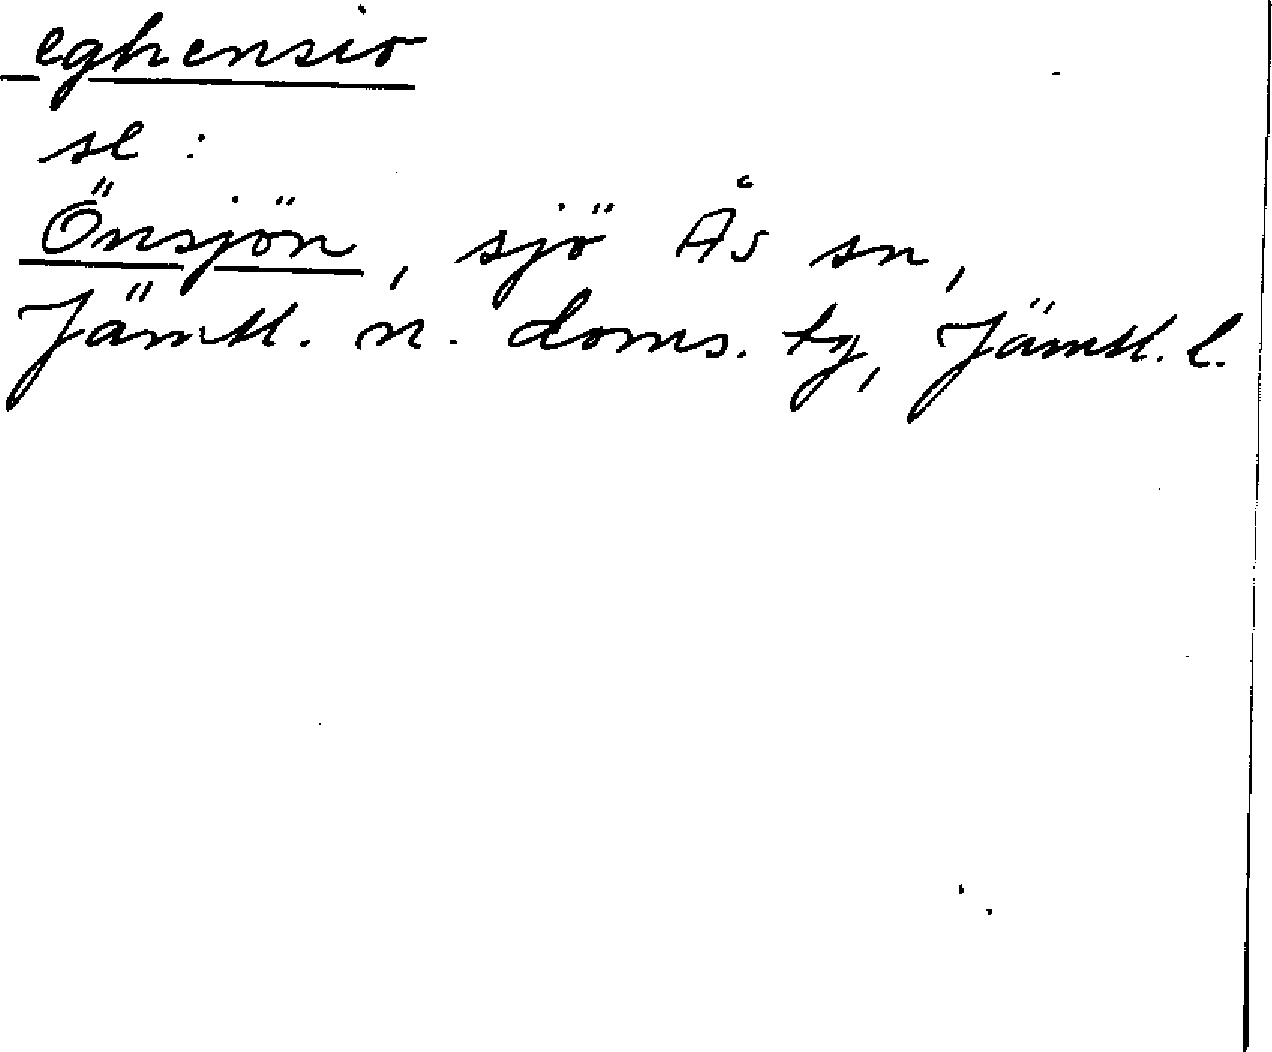 eghensio
se :
Önsjön, sjö Ås sn,
Jämtl. n. doms. tg, Jämtl. l.